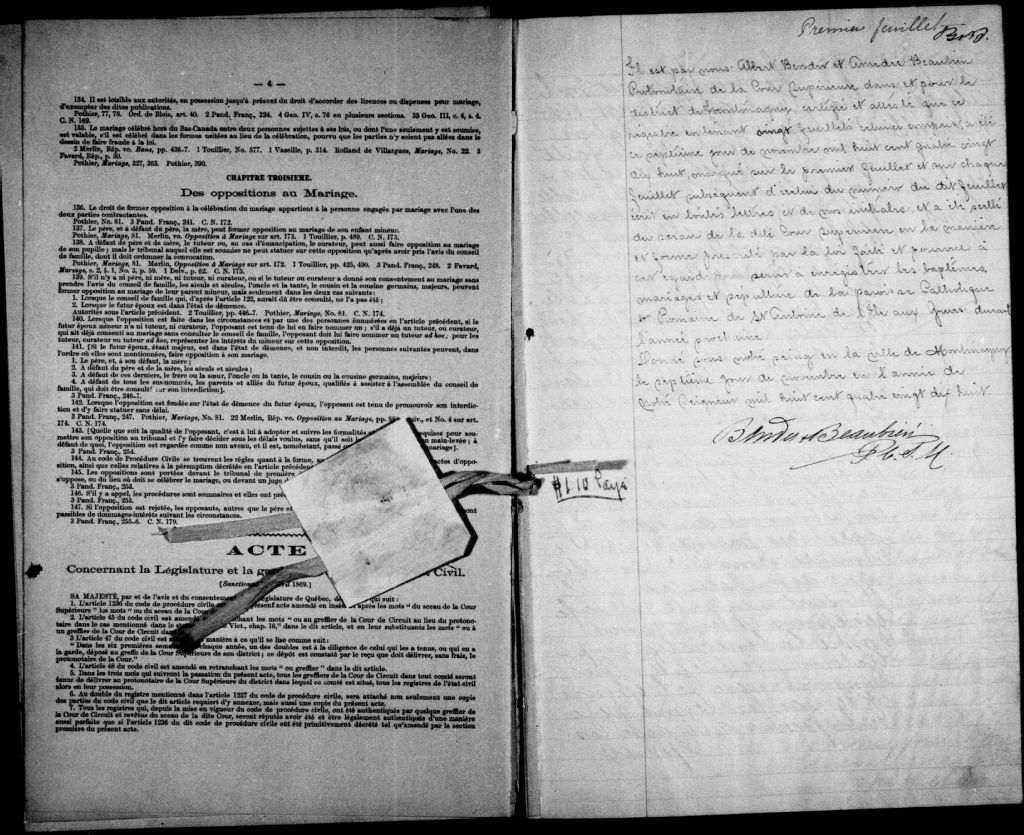 — 4 —
134. Il est loisible aux autorités, en possession jusqu'à présent du droit d'accorder des licences ou dispenses pour mariage,
d'exempter des dites publications.
Pothier, 77, 78. Ord. de Blois, art. 40. 2 Pand. Franç., 324. 4 Geo. IV, c. 76 en plusieurs sections. 35 Geo. III, c. 4, s. 4.
C. N. 169.
135. Le mariage célébré hors du Bas-Canada entre deux personnes sujettes à ses lois, ou dont l'une seulement y est soumise,
est valable, s'il est célébré dans les formes usitées au lieu de la célébration, pourvu que les parties n'y soient pas allées dans le
dessin de faire fraude à la loi.
2 Merlin, Rép. vo. Bans, pp. 436-7. 1 Touillier, No. 577. 1 Vazeille, p. 314. Rolland de Villargues, Mariage, No. 22. 3
Favard, Rép., p. 30.
Pothier, Mariage, 327, 363. Pothier, 390.
CHAPITRE TROISIEME.
Des oppositions au Mariage.
136. Le droit de former opposition à la célébration du mariage appartient à la personne engagée par mariage avec l'une des
deux parties contractantes.
Pothier, No. 81. 3 Pand. Franç., 241. C. N. 172.
137. Le père, et à défaut du père, la mère, peut former opposition au mariage de son enfant mineur.
Pothier, Mariage, 81. Merlin, vo. Opposition à Mariage sur art. 173. 1 Touillier, p. 489. C. N. 173.
138. A défaut de père et de mère, le tuteur ou, au cas d'émancipation, le curateur, peut aussi faire opposition au mariage
de son pupille; mais le tribunal auquel elle est soumise ne peut statuer sur cette opposition qu'après avoir pris l'avis du conseil de
famille, dont il doit ordonner la convocation.
Pothier, Mariage, 81. Merlin, Opposition à Mariage sur art. 172. 1 Touillier, pp. 425, 490. 3 Pand. Franç., 248. 2 Favard,
Mariage, s. 2, § 1, No. 3, p. 59. 1 Delv., p. 62. C. N. 175.
139. S'il n'y a ni père, ni mère, ni tuteur, ni curateur, ou si le tuteur ou curateur a donné son consentement au mariage sans
prendre l'avis du conseil de famille, les aïeuls et aïeules, l'oncle et la tante, le cousin et la cousine germains, majeurs, peuvent
former opposition au mariage de leur parent mineur, mais seulement dans les deux cas suivants:
1. Lorsque le conseil de famille qui, d'après l'article 122, aurait dû être consulté, ne l'a pas été;
2. Lorsque le futur époux est dans l'état de démence.
Autorités sous l'article précédent. 2 Touillier, pp. 446-7. Pothier, Mariage, No. 81. C. N. 174.
140. Lorsque l'opposition est faite dans les circonstances et par une des personnes énumérées en l'article précédent, si le
futur époux mineur n'a ni tuteur, ni curateur, l'opposant est tenu de lui en faire nommer un; s'il a déjà un tuteur, ou curateur,
qui ait déjà consenti au mariage sans consulter le conseil de famille, l'opposant doit lui faire nommer un tuteur ad hoc; pour les
tuteur, curateur ou tuteur ad hoc, représenter les intérêts du mineur sur cette opposition.
141. [Si le futur époux, étant majeur, est dans l'état de démence, et non interdit, les personnes suivantes peuvent, dans
l'ordre où elles sont mentionnées, faire opposition à son mariage.
1. Le père, et, à son défaut, la mère;
2. A défaut du père et de la mère, les aïeuls et aïeules;
3. A défaut de ces derniers, le frère ou la sœur, l'oncle ou la tante, le cousin ou la cousine germains, majeurs;
4. A défaut de tous les sus-nommés, les parents et alliés du futur époux, qualifiés à assister à l'assemblée du conseil de
famille, qui doit être consulté sur son interdiction].
3 Pand. Franç., 246-7.
142. Lorsque l'opposition est fondée sur l'état de démence du futur époux, l'opposant est tenu de promouvoir son interdic-
tion et d'y faire statuer sans délai.
3 Pand. Franç., 247. Pothier, Mariage, No. 81. 22 Merlin, Rép. vo. Opposition au Mariage, pp. iv., et No. 4 sur art.
174. C. N. 174.
143. [Quelle que soit la qualité de l'opposant, c'est à lui à adopter et suivre les formalités requises pour sou-
mettre son opposition au tribunal et l'y faire décider sous les délais voulus, sans qu'il soit main-levée; à
défaut de quoi, l'opposition est regardée comme non avenu, et il est, nonobstant, passé mariage].
3 Pand. Franç., 254.
144. Au code de Procédure Civile se trouvent les règles quant à la forme, actes d'oppo-
sition, ainsi que celles relatives à la péremption décrétée en l'article précéde
145. Les oppositions sont portées devant le tribunal de première
s'oppose, ou du lieu où doit se célébrer le mariage, ou devant un juge d
3 Pand. Franç., 253.
146. S'il y a appel, les procédures sont sommaires et elles ont pré
3 Pand. Franç., 253.
147. Si l'opposition est rejetée, les opposants, autres que le père et ont
passibles de dommages-intérêts suivant les circonstances.
3 Pand. Franç., 255-6. C. N. 179.
ACTE
Concernant la Législature et la ga Civil.
[Sanctionn ril 1869.]
SA MAJESTÉ, par et de l'avis et du consentement égislature de Québec, qui suit:
1. L'article 1236 du code de procédure civile présent acte amendé en insé après les mots "du sceau de la Cour
Supérieure" les mots "ou du sceau de la Cour
2. L'article 45 du code civil est amendé chant les mots "ou au greffier de la Cour au lieu du protono-
taire dans le cas mentionné dans le st Vict., chap. 16," dans le dit article, et en leur substituants les mots "ou à
un greffier de la Cour de Circuit dan
3 L'article 47 du code civil est manière à ce qu'il se lise comme suit:
"Dans les six premières sem chaque année, un des doubles est à la diligence de celui qui les a tenus, ou qui en a
la garde, déposé au greffe de la Cour Supérieure de son district; ce dépôt est constaté par le reçu que doit délivrer, sans frais, le
protonotaire de la Cour."
4. L'article 48 du code civil est amendé en retranchant les mots "ou greffier" dans le dit article.
5. Dans les trois mois qui suivront la passation du présent acte, tous les greffiers de la Cour de Circuit dans tout comté seront
tenus de délivrer au protonotaire de la Cour Supérieure du district dans lequel ce comté est situé, tous les registres de l'état civil
alors en leur possession.
6. Au double du registre mentionné dans l'article 1237 du code de procédure civile, sera attaché non seulement une copie
des parties du code civil que le dit article requiert d'y annexer, mais aussi une copie du présent acte.
7. Tous les registres qui, depuis la mise en vigueur du code de procédure civile, ont été authentiqués par quelque greffier de
la Cour de Circuit et revêtus du sceau de la dite Cour, seront réputés avoir été et être légalement authentiqués d'une manière
aussi parfaite que si l'article 1236 du dit code de procédure civile eût été primitivement décrété tel qu'amendé par la section
première du présent acte.
Premier feuillet B & B.
Il est par nous Albert Bender et Amédée Beaubien
Protonotaire de la Cour Supérieure dans et pour le
district de Montmagny certifié et attesté que ce
registre contenant vingt feuillets celui-ci compris a été
ce septième jour de novembre mil huit cent quatre vingt
dix huit, marqué sur le premier feuillet et sur chaque
feuillet subséquent d'icelui du numéro du dit feuillet
écrit en toutes lettres et de nos initiales et a été scellé
du sceau de la dite Cour Supérieure en la manière
et forme prescrite par la loi faite et pourvue à
cet égard pour servir à enregistrer les baptêmes,
mariages et sépulture de la paroisse Catholique
& Romaine de St Antoine de l'Ile aux Grues durant
l'année prochaine.
Donné sous notre seing en la ville de Montmagny
le septième jour de novembre en l'année de
Notre Seigneur mil huit cent quatre vingt dix huit.
Bender & Beaubien
P. C. S. M
$1.10 Payé